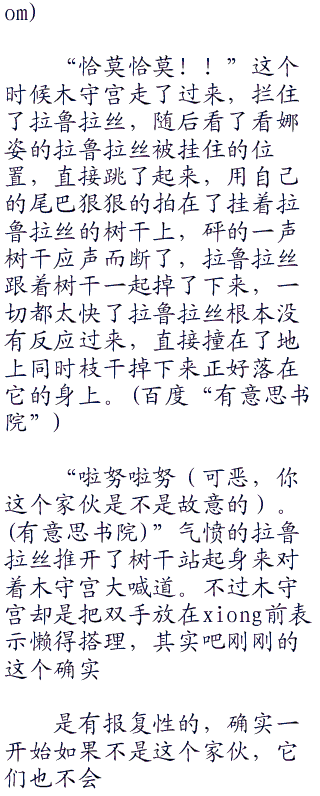 om)
“恰莫恰莫！！”这个
时候木守宫走了过来，拦住
了拉鲁拉丝，随后看了看娜
姿的拉鲁拉丝被挂住的位
置，直接跳了起来，用自己
的尾巴狠狠的拍在了挂着拉
鲁拉丝的树干上，砰的一声
树干应声而断了，拉鲁拉丝
跟着树干一起掉了下来，一
切都太快了拉鲁拉丝根本没
有反应过来，直接撞在了地
上同时枝干掉下来正好落在
它的身上。(百度“有意思书
院”)
“啦努啦努（可恶，你
这个家伙是不是故意的）。
(有意思书院)”气愤的拉鲁
拉丝推开了树干站起身来对
着木守宫大喊道。不过木守
宫却是把双手放在xiong前表
示懒得搭理，其实吧刚刚的
这个确实
是有报复性的，确实一
开始如果不是这个家伙，它
们也不会